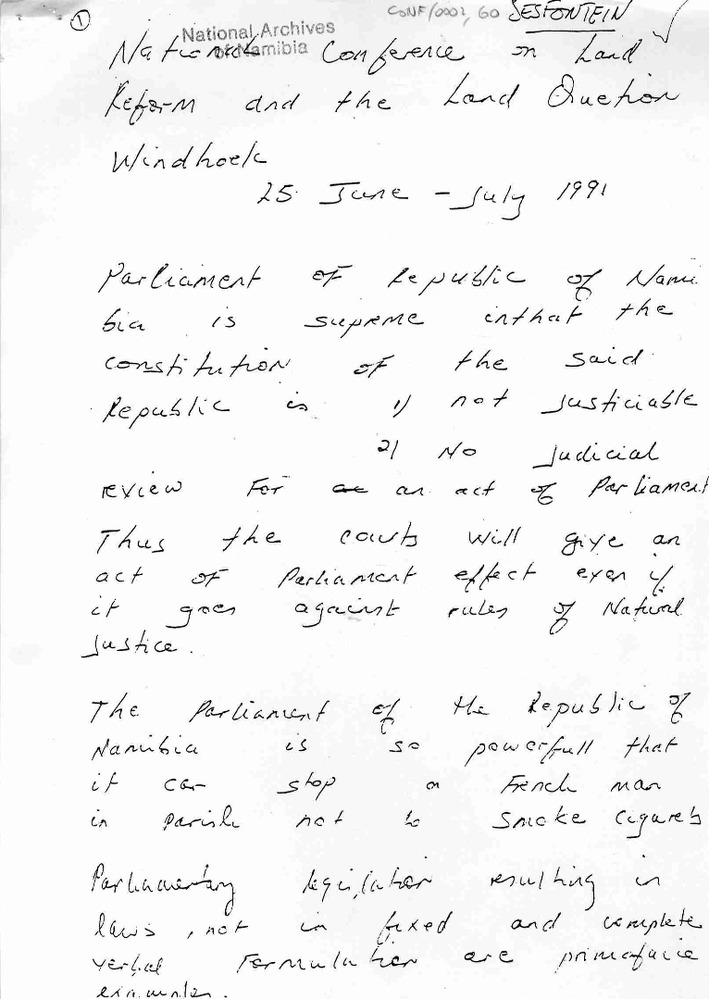 ① CONF/0001, 60 SESFONTEIN
National Archives
of Namibia
National Conference on Land
Reform and the Land Question
Windhoek
25 June - July 1991
Parliament of Republic of Nami
bia is supreme inthat the
constitution of the said
Republic is 1) not justiciable
2) No judicial
review for an act of Parliament
Thus the courts will give an
act of Parliament effect even if
it goes against rules of Natural
Justice.
The Parliament of the Republic of
Namibia is so powerfull that
it can stop a French man
in Paris not to smoke cigarets
Parliamentary legislation resulting in
laws, not in fixed and complete
verbal Formulation are primafacie
examples.